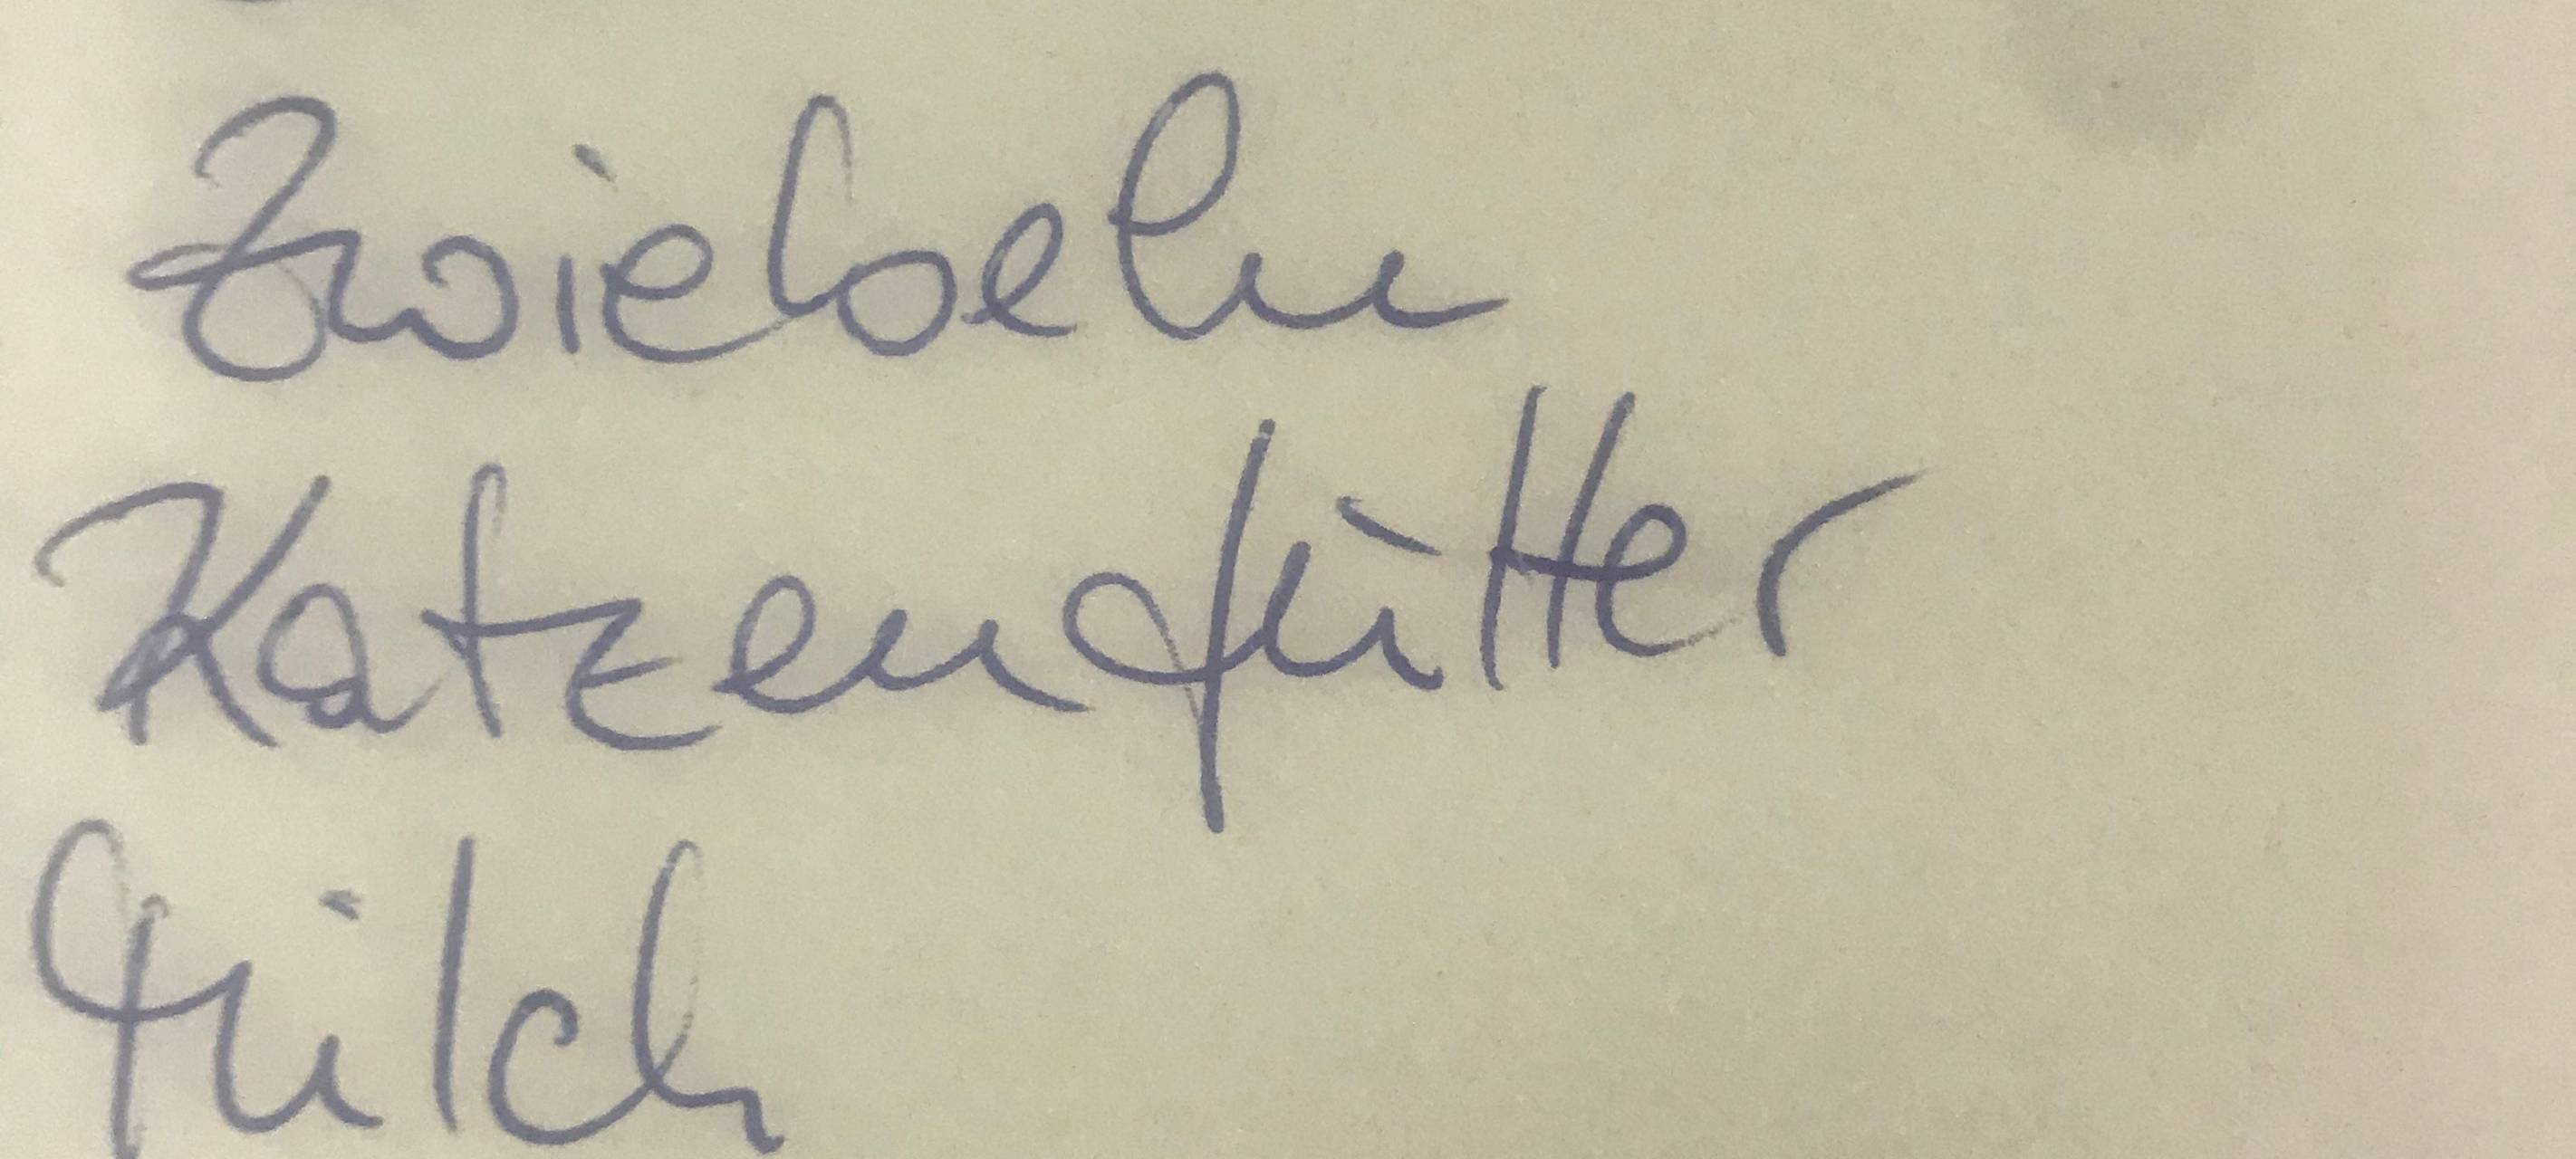 Zwiebeln
Katzenfutter
Milch